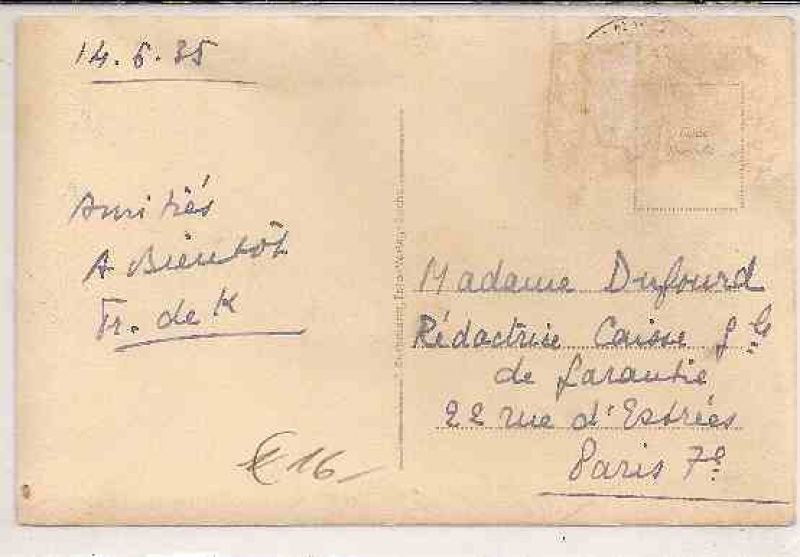 14.6.35
Amitiés
A Bientôt
Fr. de K
Madame Dufourd
Rédactrice Caisse Gle
de Garantie
22 rue d'Estrées
Paris 7e
€ 16-